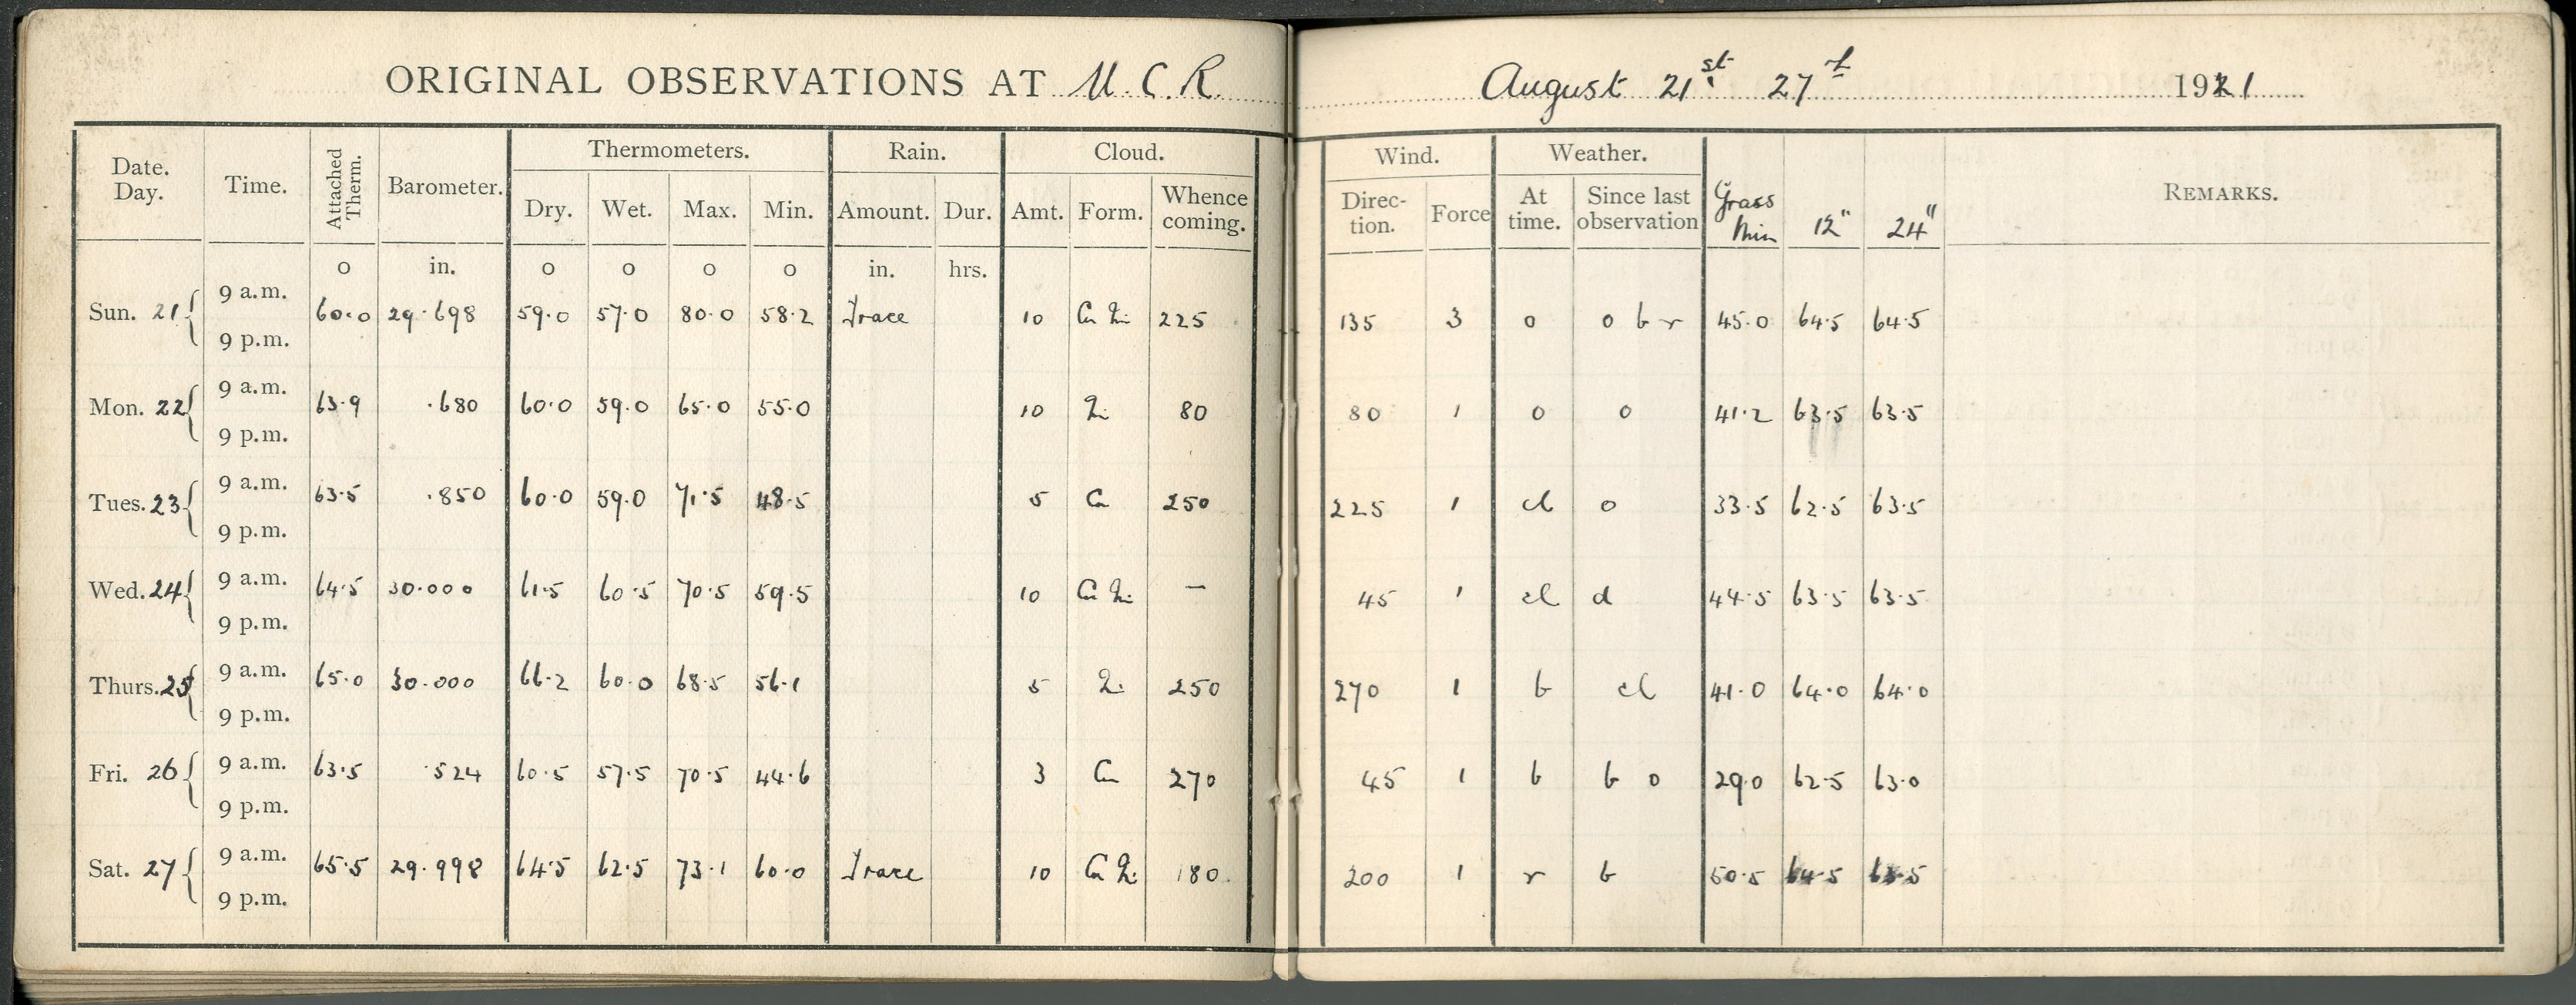 ORIGINAL OBSERVATIONS AT U.C.R. August 21st 27th 1921
Thermometers. Rain. Cloud. Wind. Weather.
Date. Day. Time. Attached Therm. Barometer. Dry. Wet. Max. Min. Amount. Dur. Amt. Form. Whence coming. Direc-tion. Force At time. Since last observation Grass Min 12" 24" REMARKS.
o in. o o o o in. hrs.
9 a.m.
Sun. 21 60.0 29.698 59.0 57.0 80.0 58.2 Trace 10 Cu Ni 225 135 3 o o b r 45.0 64.5 64.5
9 p.m.
9 a.m.
Mon. 22 63.9 .680 60.0 59.0 65.0 55.0 10 Ni 80 80 1 o o 41.2 63.5 63.5
9 p.m.
9 a.m.
Tues. 23 63.5 .850 60.0 59.0 71.5 48.5 5 Cu 250 225 1 cl o 33.5 62.5 63.5
9 p.m.
9 a.m.
Wed. 24 64.5 30.000 61.5 60.5 70.5 59.5 10 Cu Ni — 45 1 cl d 44.5 63.5 63.5
9 p.m.
9 a.m.
Thurs. 25 65.0 30.000 66.2 60.0 68.5 56.1 5 Ni 250 270 1 b cl 41.0 64.0 64.0
9 p.m.
9 a.m.
Fri. 26 63.5 .524 60.5 57.5 70.5 44.6 3 Cu 270 45 1 b b o 29.0 62.5 63.0
9 p.m.
9 a.m.
Sat. 27 65.5 29.998 64.5 62.5 73.1 60.0 Trace 10 Cu Ni 180 200 1 r b 50.5 64.5
9 p.m.